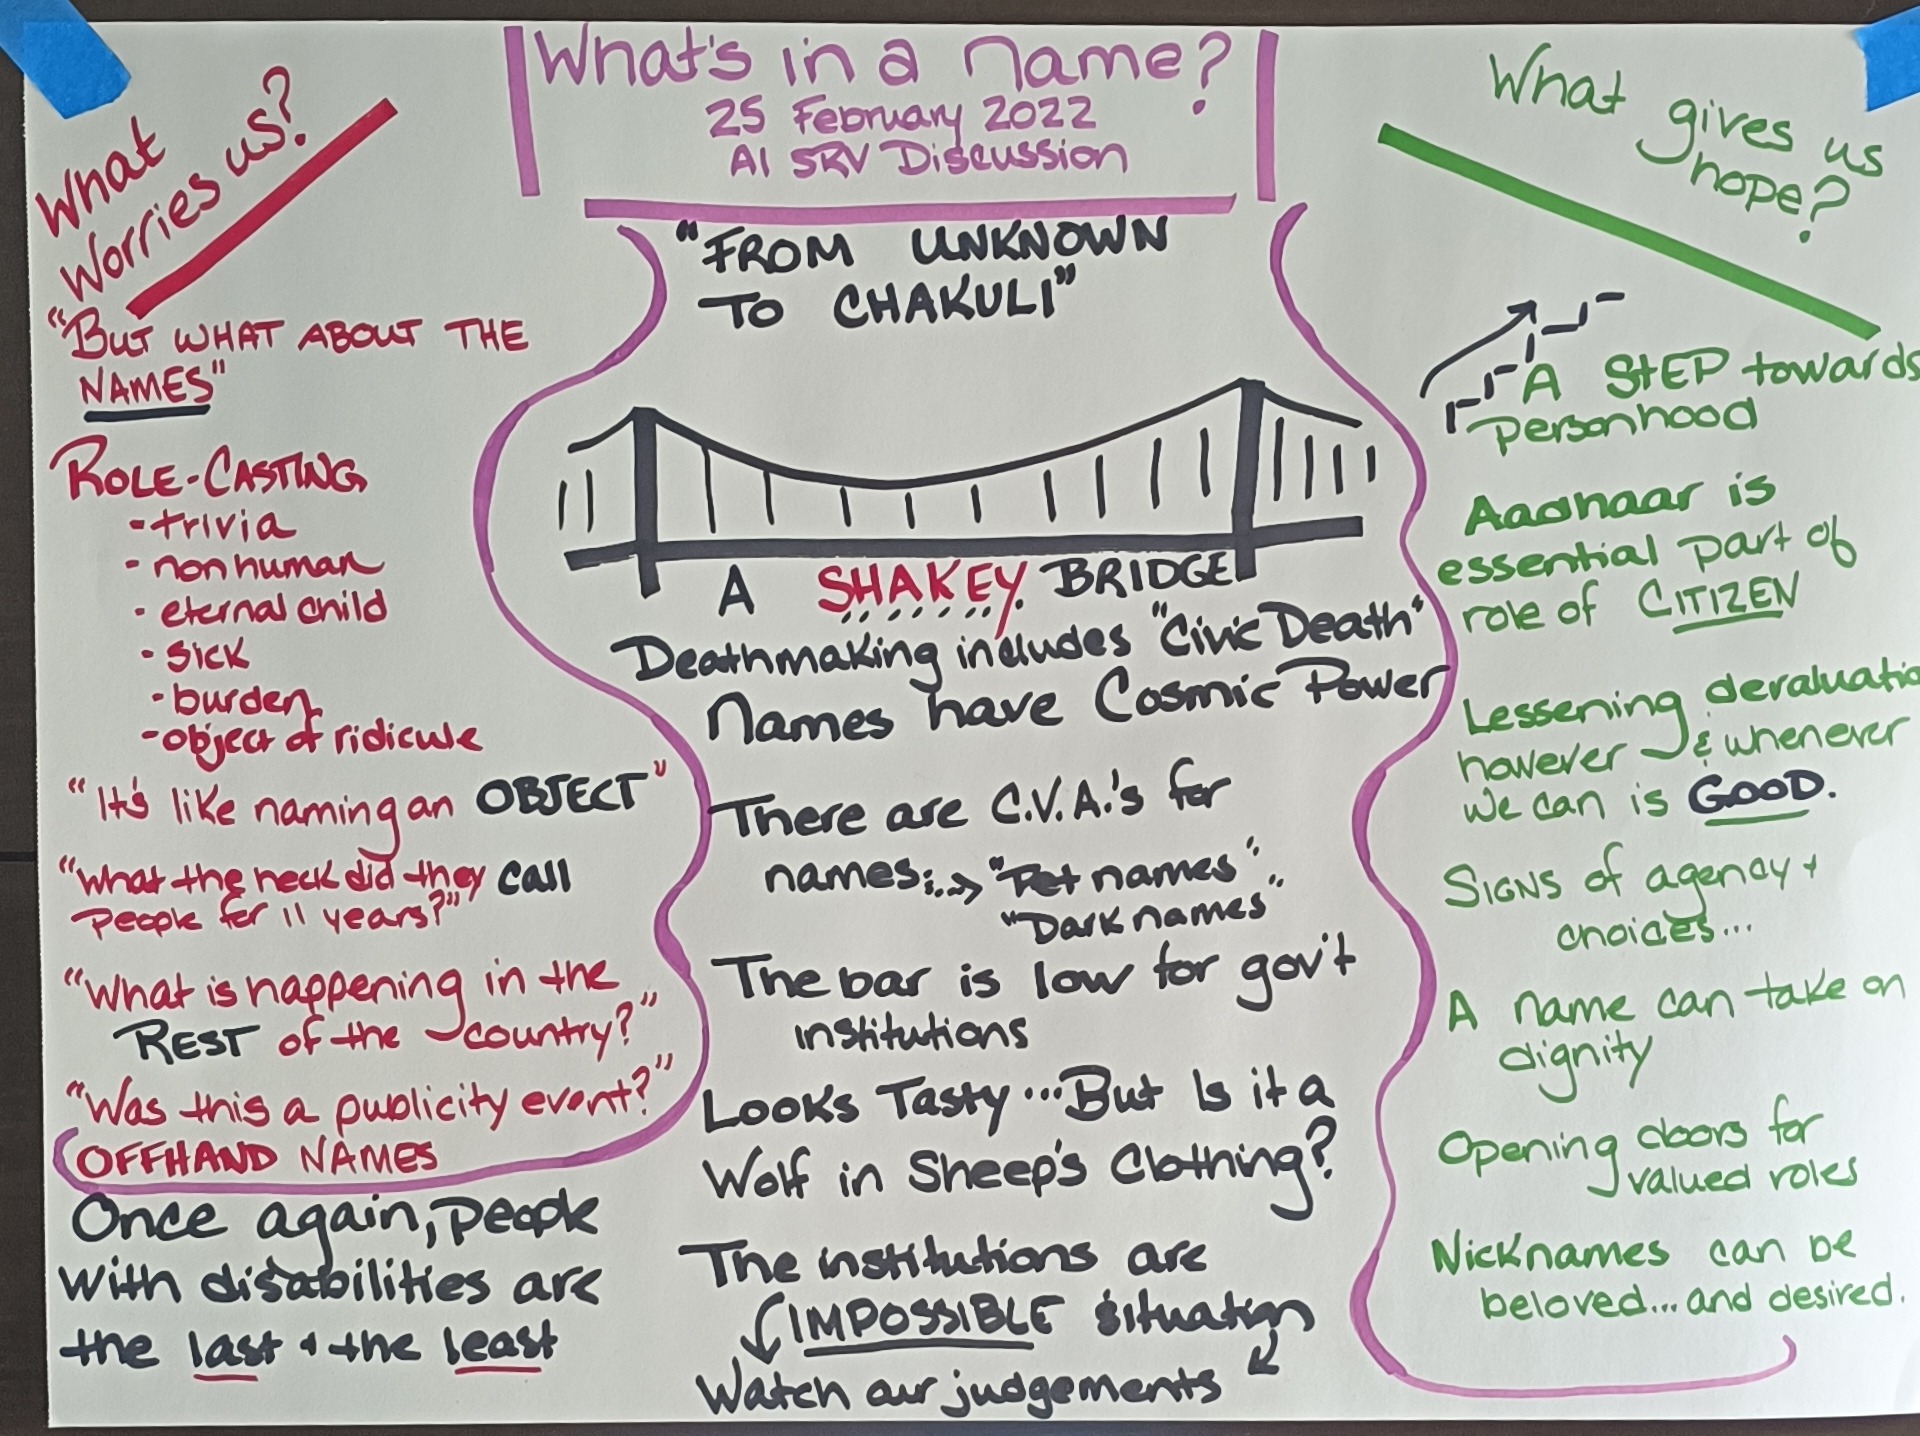 What's in a name?
25 February 2022
AI SRV Discussion
What
Worries us?
"BUT WHAT ABOUT THE
NAMES"
ROLE-CASTING
- trivia
- nonhuman
- eternal child
- sick
- burden
- object of ridicule
"It's like naming an OBJECT"
"What the heck did they call
people for 11 years?"
"What is happening in the
REST of the country?"
"Was this a publicity event?"
OFFHAND NAMES
Once again, people
with disabilities are
the last + the least
"FROM UNKNOWN
TO CHAKULI"
A SHAKEY BRIDGE
Deathmaking includes "Civic Death"
Names have Cosmic Power
There are C.V.A.'s for
names: "Pet names"
"Dark names"
The bar is low for gov't
institutions
Looks Tasty...But Is it a
Wolf in Sheep's Clothing?
The institutions are
IMPOSSIBLE situation
Watch our judgements
What gives us
hope?
A STEP towards
personhood
Aadhaar is
essential part of
role of CITIZEN
Lessening devaluatio
however & whenever
we can is GOOD.
SIGNS of agency +
choices...
A name can take on
dignity
Opening doors for
valued roles
Nicknames can be
beloved... and desired.